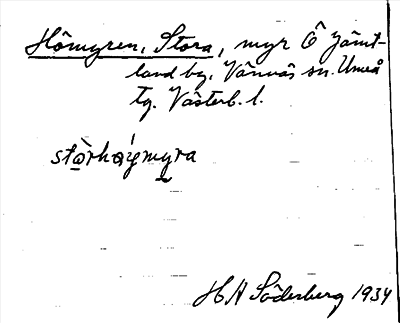 Hömyren, Stora, myr Ö Jämt-
land by, Vännäs sn. Umeå
tg. Västerb. l.
stòrhǫ́ymyra
H A Söderberg 1934